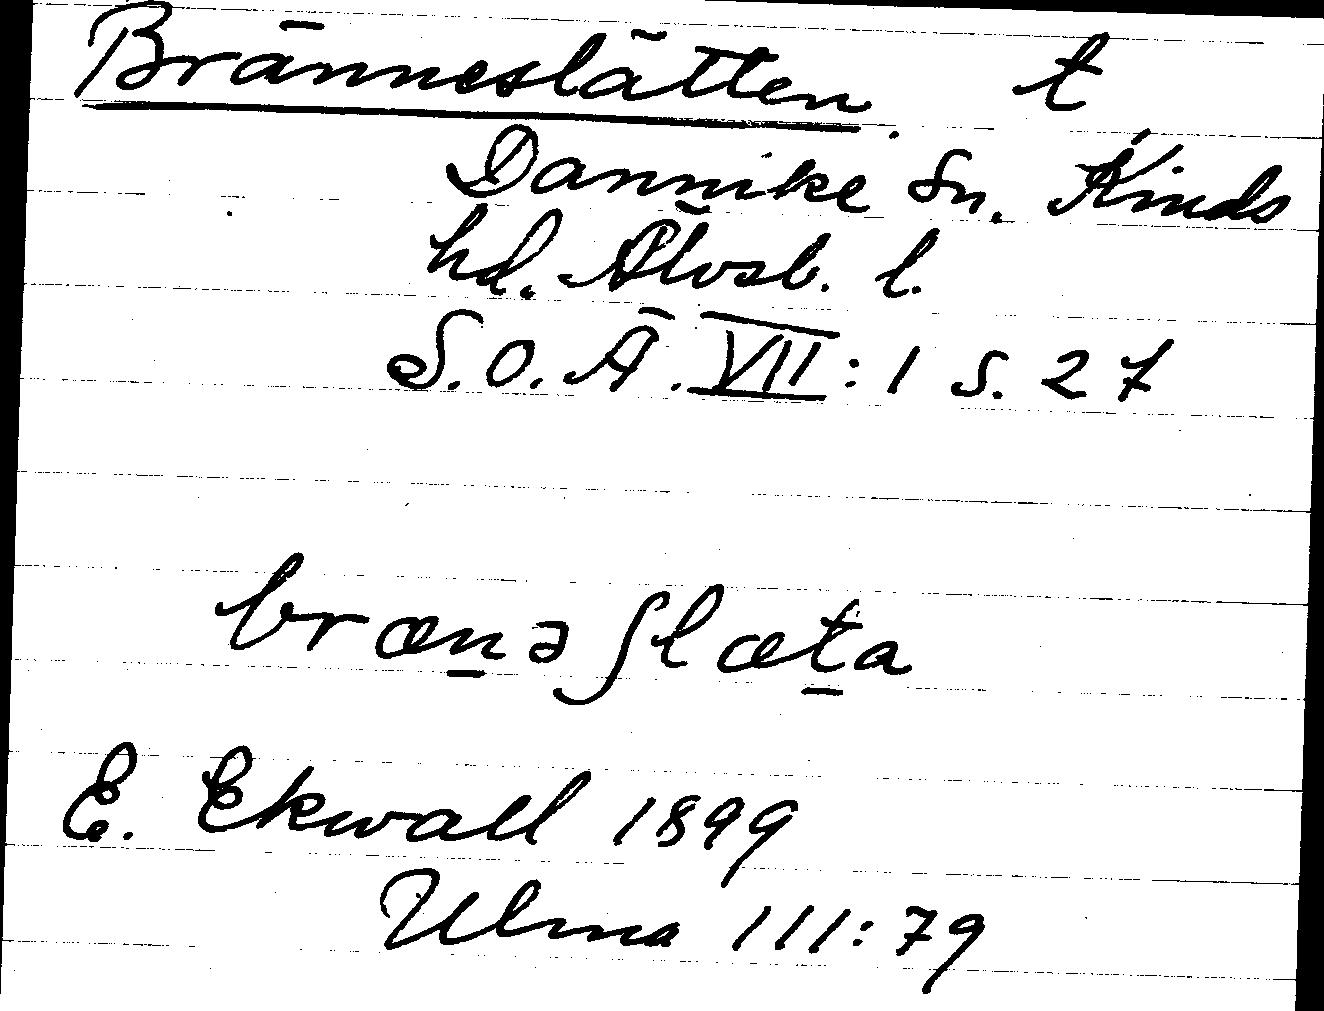 Bränneslätten. t
Dannike sn. Kinds
hd. Älvsb. l.
S.O.Ä. VII: 1 s. 27
bræn̲əʃlæt̲a
E. Ekwall 1899
Ulma 111:79